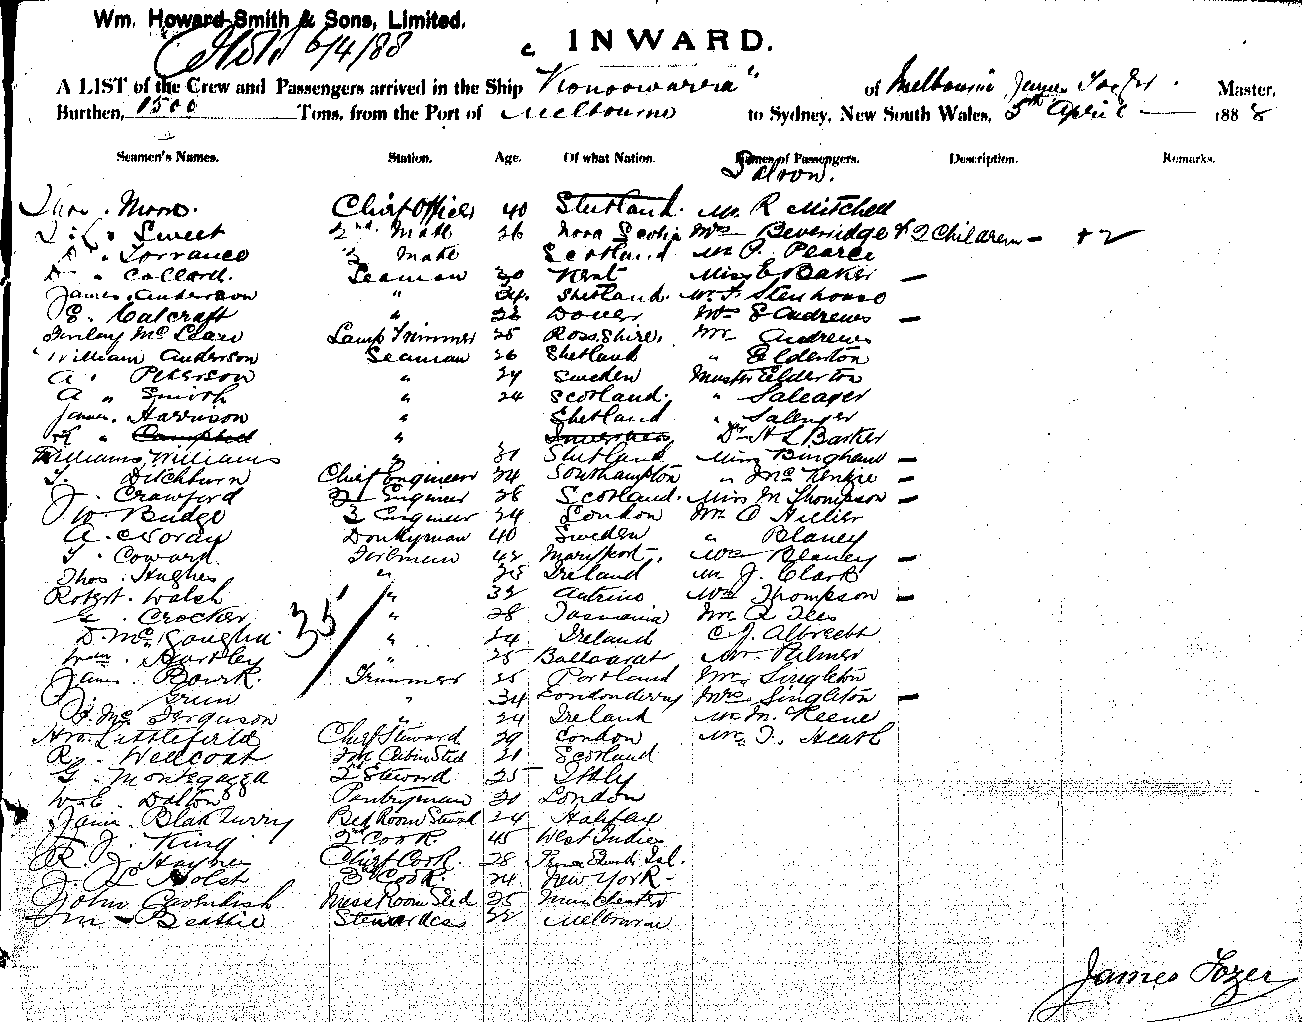 Wm. Howard Smith & Sons, Limited.
6/4/88
INWARD.
A LIST of the Crew and Passengers arrived in the Ship "Konoowarra" of Melbourne James Tozer Master,
Burthen, 1500 Tons, from the Port of Melbourne to Sydney, New South Wales, 5th April 1888
Seamen's Names. Station. Age. Of what Nation. Names of Passengers. Description. Remarks.
Saloon.
Moore. Chief Officer 40 Shetland. Mr R Mitchell
Sweet 2nd Mate 26 Nova Scotia Mrs Beveridge & 2 Children - + 2
Torrance 3 Mate Scotland Mr P. Pearce
Collard. Seaman 30 Kent Miss E Baker -
James Anderson " 34. Shetland. Mr F. Stenhouse
E. Calcraft " 22 Dover Mrs E Andrews -
Finlay McLean Lamp Trimmer 25 Ross Shire. Mr Andrews
William Anderson Seaman 26 Shetland " Elderton
A. Peterson " 24 Sweden Master Elderton
A " Smith " 24 Scotland. " Saleager
James. Harrison " Shetland " Salenger
" Campbell " Inverness Dr H L Barker
Williams Williams " 31 Shetland Miss Bingham -
T. Ditchburn Chief Engineer 34 Southampton " McKenzie -
J. Crawford 2 Engineer 28 Scotland. Miss M Thompson -
W Budge 3 Engineer 24 London Mr O Hillier
A. Noray Donkyman 40 Sweden " Blaney
T. Coward. Foreman 42 Maryport. Mrs Blaney -
Thos. Hughes " 25 Ireland Mr J. Clark
Robert. Walsh " 32 Antrim Mrs Thompson -
G. Crocker " 28 Tasmania Mr R Lees
D. McLoughlin " 24 Ireland C J. Albrecht
35
Wm. Hartley " 25 Ballaarat Mr Palmer
James Bourk. Trimmer 25 Portland Mr. Singleton
J. Grun " 34 Londonderry Mrs Singleton -
J. Mc Ferguson " 24 Ireland Mr M. Keene
Littlefield Chief Steward 29 London Mr. T. Heath
R. Wellcoat Fore Cabin Std 21 Scotland
G. Montegazza 2 Steward 25 Italy
W. E. Dalton Pantryman 21 London
James Blackburry Bed Room Steward 24 Halifax
J. King 2nd Cook. 45 West Indies
R. J. Haynes Chief Cook. 28 Prince Edwards Isl.
J. C Holst 3 Cook. 24 New York -
John Cavendish Mess Room Std 25 Manchester
Beattie Stewardess 22 Melbourne
James Tozer